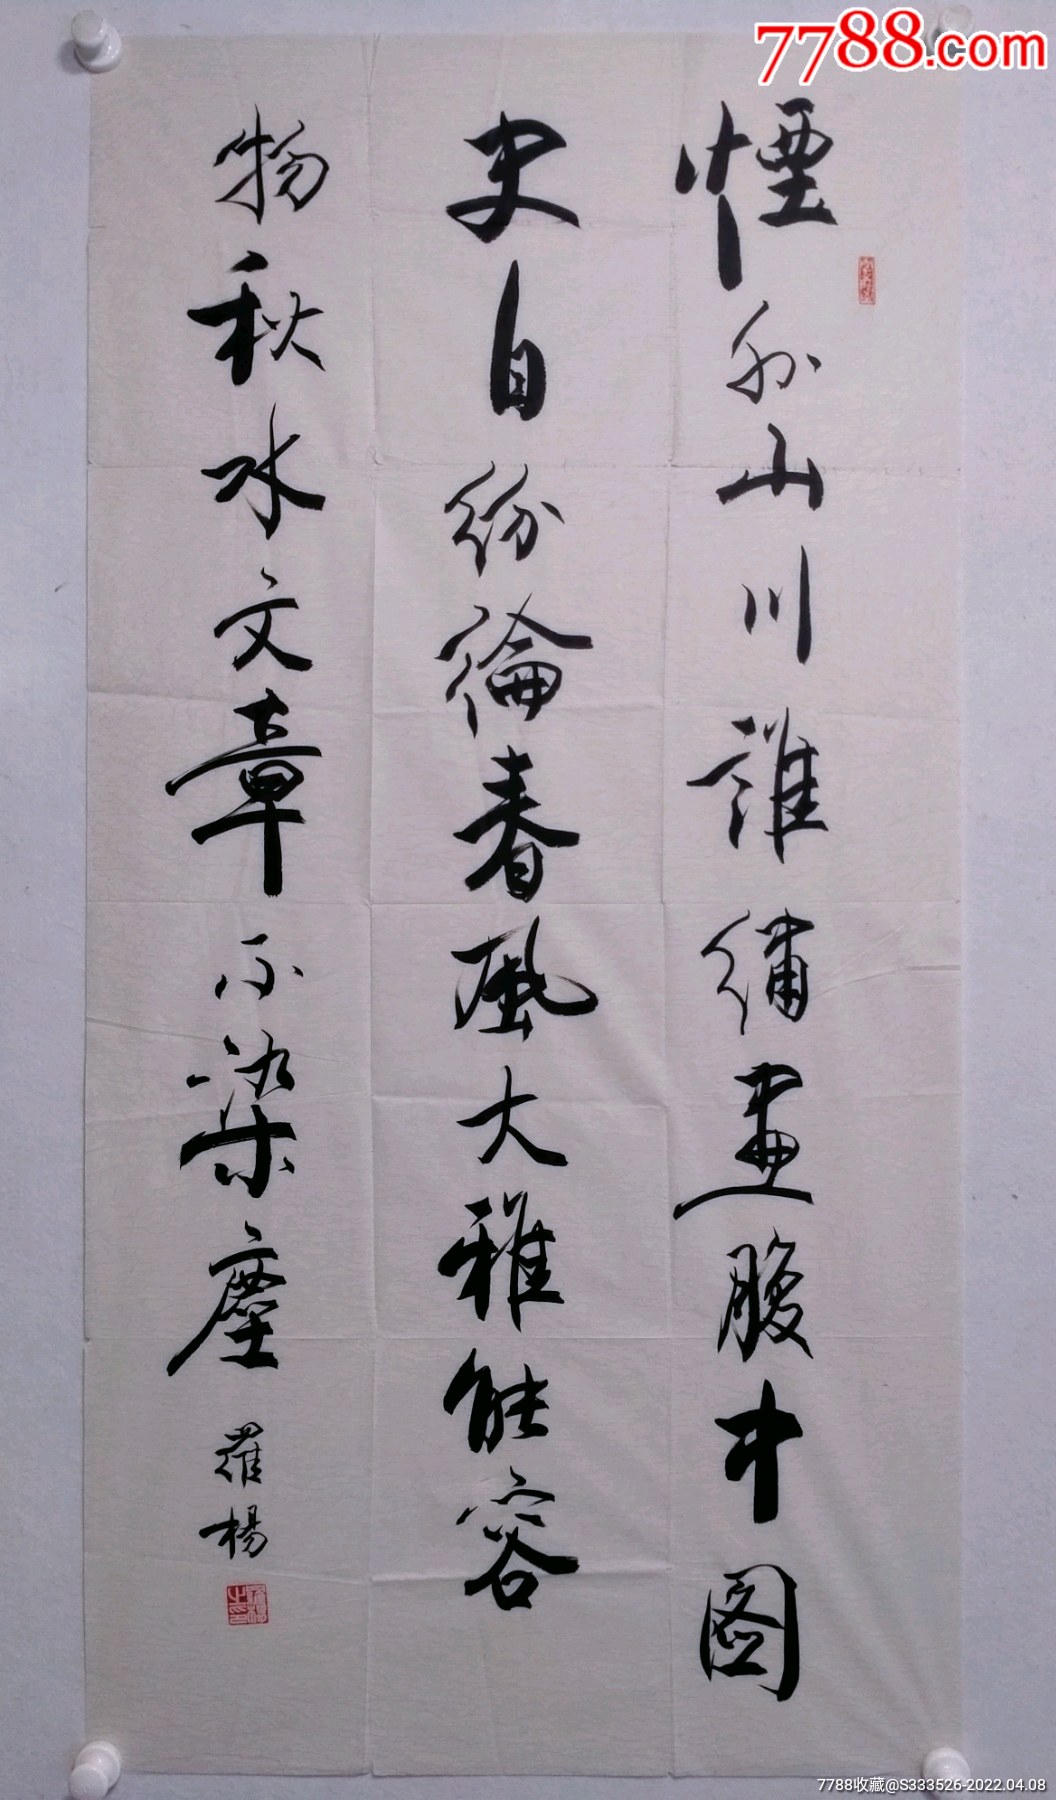 煙外山川誰繡畫腹中圖
史自紛綸春風大雅能容
物秋水文章不染塵
羅楊
7788.com
7788收藏@S333526-2022.04.08